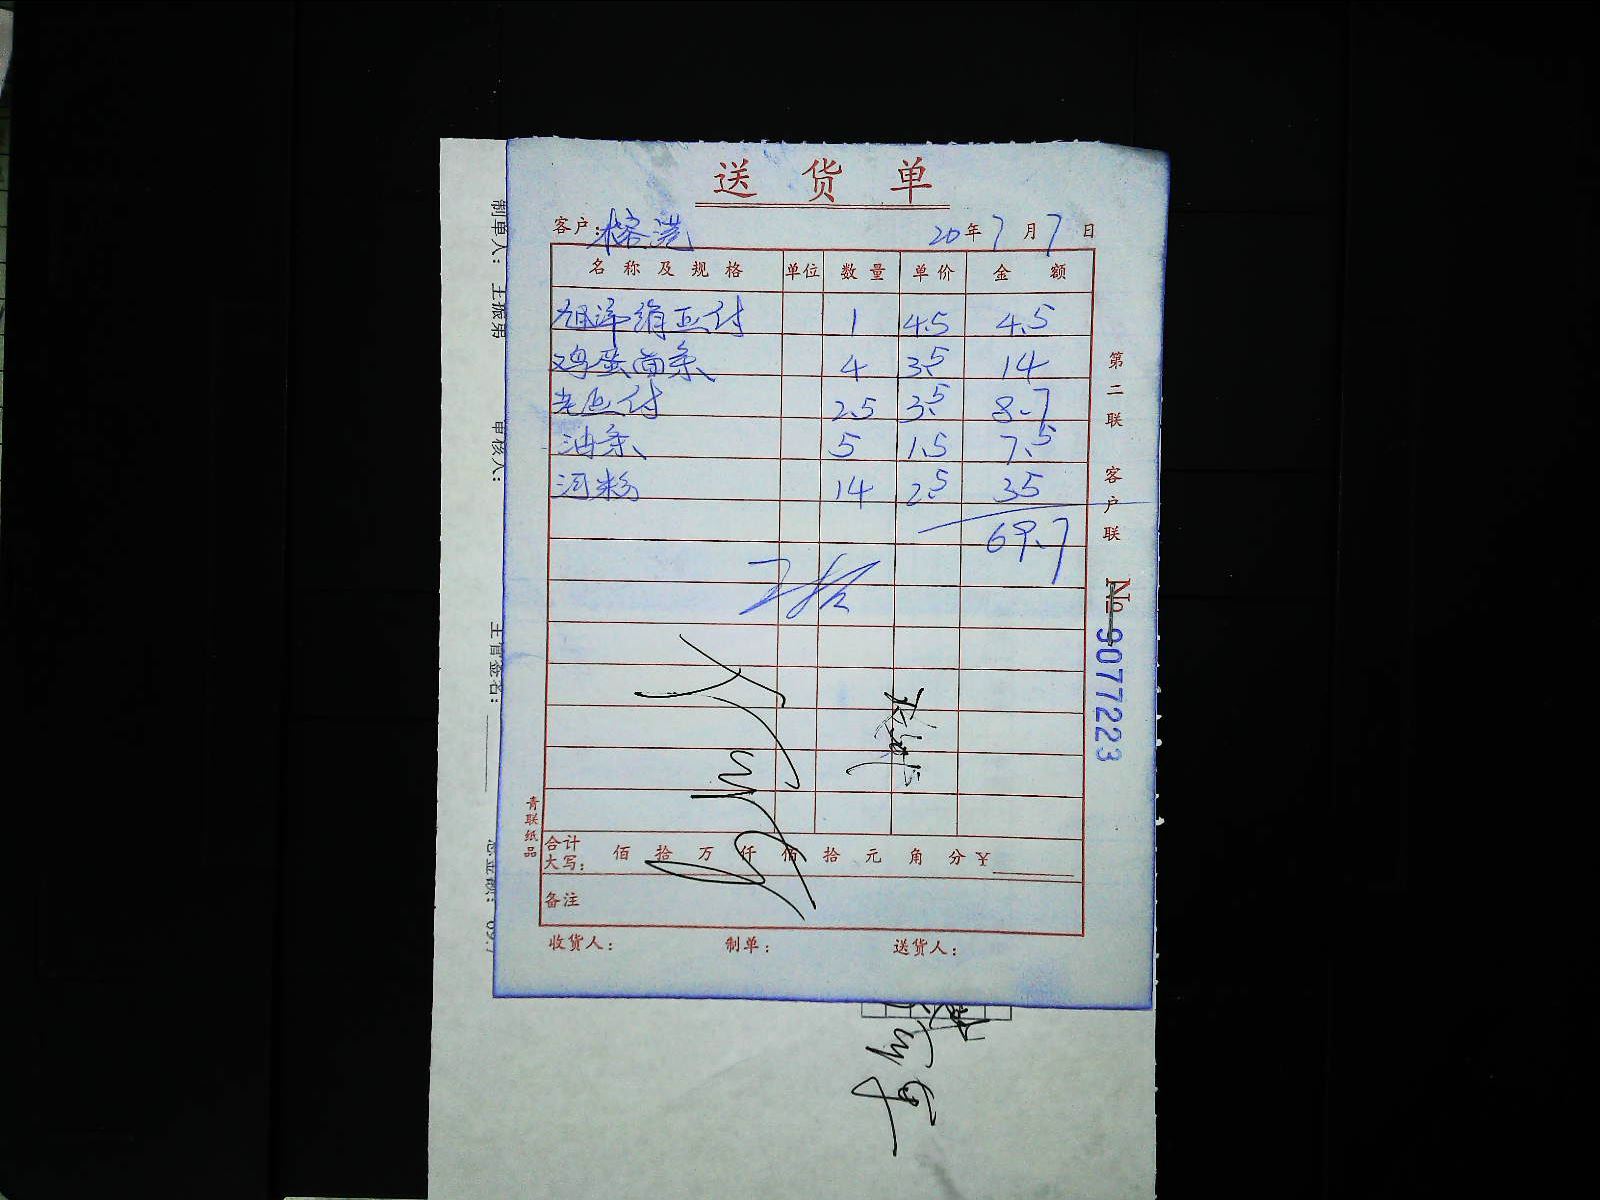 送货单
客户: 榕港 20年7月7日
名称及规格 单位 数量 单价 金额
1 4.5 4.5
鸡蛋面条 4 3.5 14
2.5 3.5 8.7
油条 5 1.5 7.5
河粉 14 2.5 35
69.7
第二联 客户联
No 9077223
青联纸品
合计大写: 佰 拾 万 仟 佰 拾 元 角 分 ¥
备注
收货人: 制单: 送货人:
制单人: 王振弟
审核人:
主管签名:
总金额: 69.7